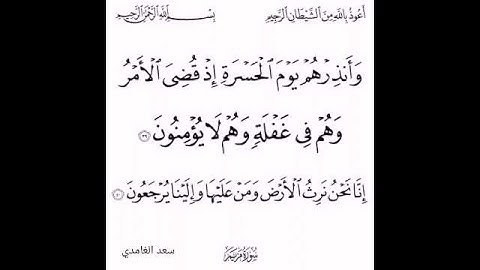 أَعُوذُ بِاللَّهِ مِنَ الشَّيْطَانِ الرَّجِيمِ بِسْمِ اللَّهِ الرَّحْمَٰنِ الرَّحِيمِ
وَأَنذِرْهُمْ يَوْمَ ٱلْحَسْرَةِ إِذْ قُضِىَ ٱلْأَمْرُ
وَهُمْ فِى غَفْلَةٍ وَهُمْ لَا يُؤْمِنُونَ ٣٩
إِنَّا نَحْنُ نَرِثُ ٱلْأَرْضَ وَمَنْ عَلَيْهَا وَإِلَيْنَا يُرْجَعُونَ ٤٠
سُورَةُ مَرْيَم سعد الغامدي